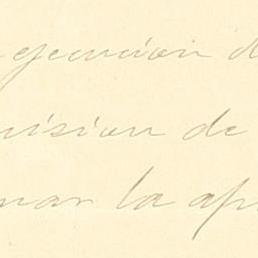 ejecucion d
ision de
mar la ap